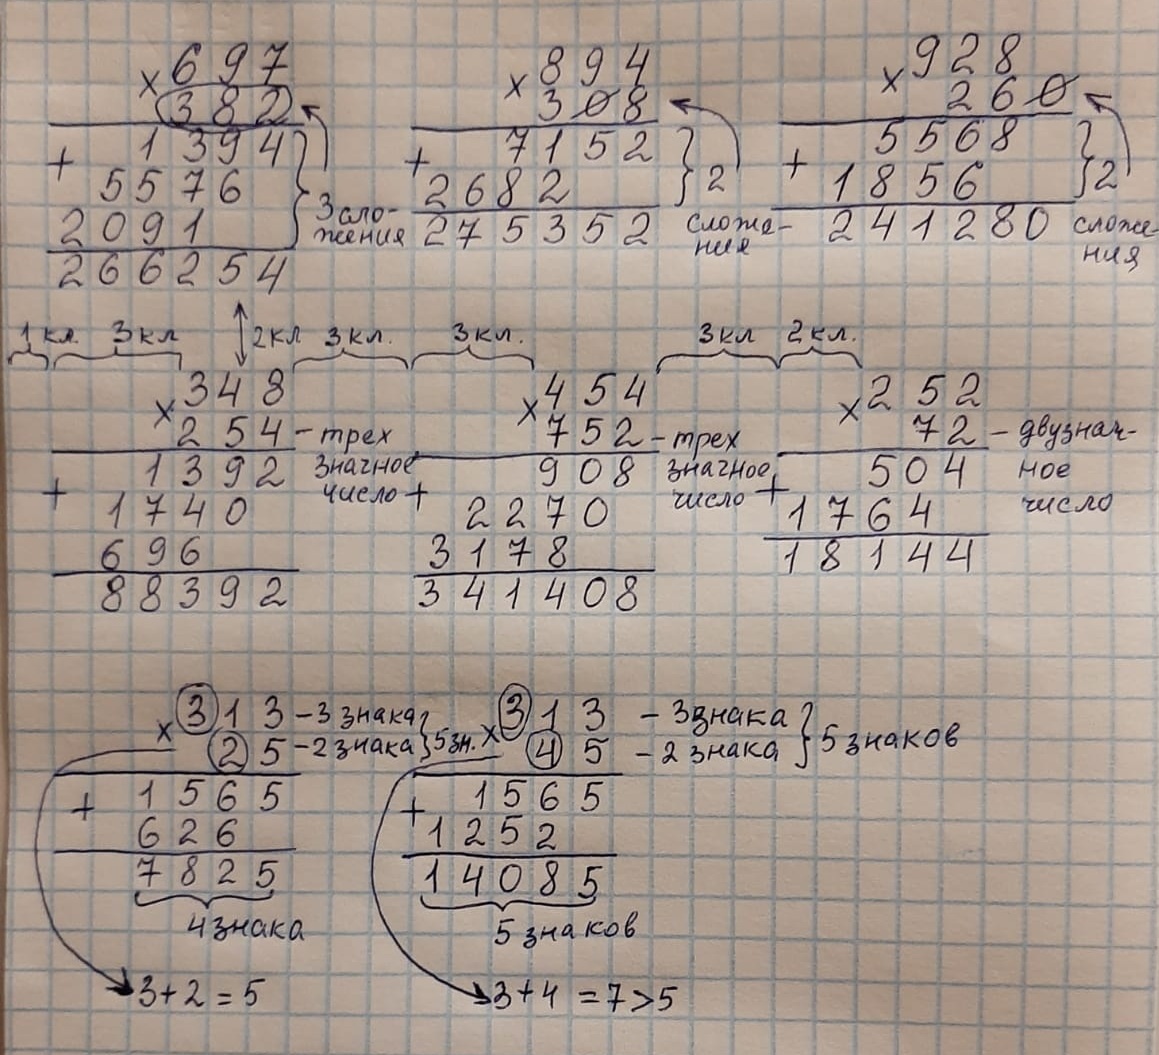 × 697
382
+ 1394
5576
2091
266254
3 сло-
жения
× 894
308
+ 7152
2682
275352
2
сложе-
ния
× 928
260
+ 5568
1856
241280
2
сложе-
ния
1 кл. 3 кл 2 кл 3 кл. 3 кл. 3 кл 2 кл.
× 348
254 - трех
значное
число
+ 1392
1740
696
88392
× 454
752 - трех
значное
число
+ 908
2270
3178
341408
× 252
72 - двузнач-
ное
число
+ 504
1764
18144
× 313 - 3 знака
25 - 2 знака } 5 зн.
+ 1565
626
7825
4 знака
3+2 = 5
× 313 - 3 знака
45 - 2 знака } 5 знаков
+ 1565
1252
14085
5 знаков
3+4 = 7>5